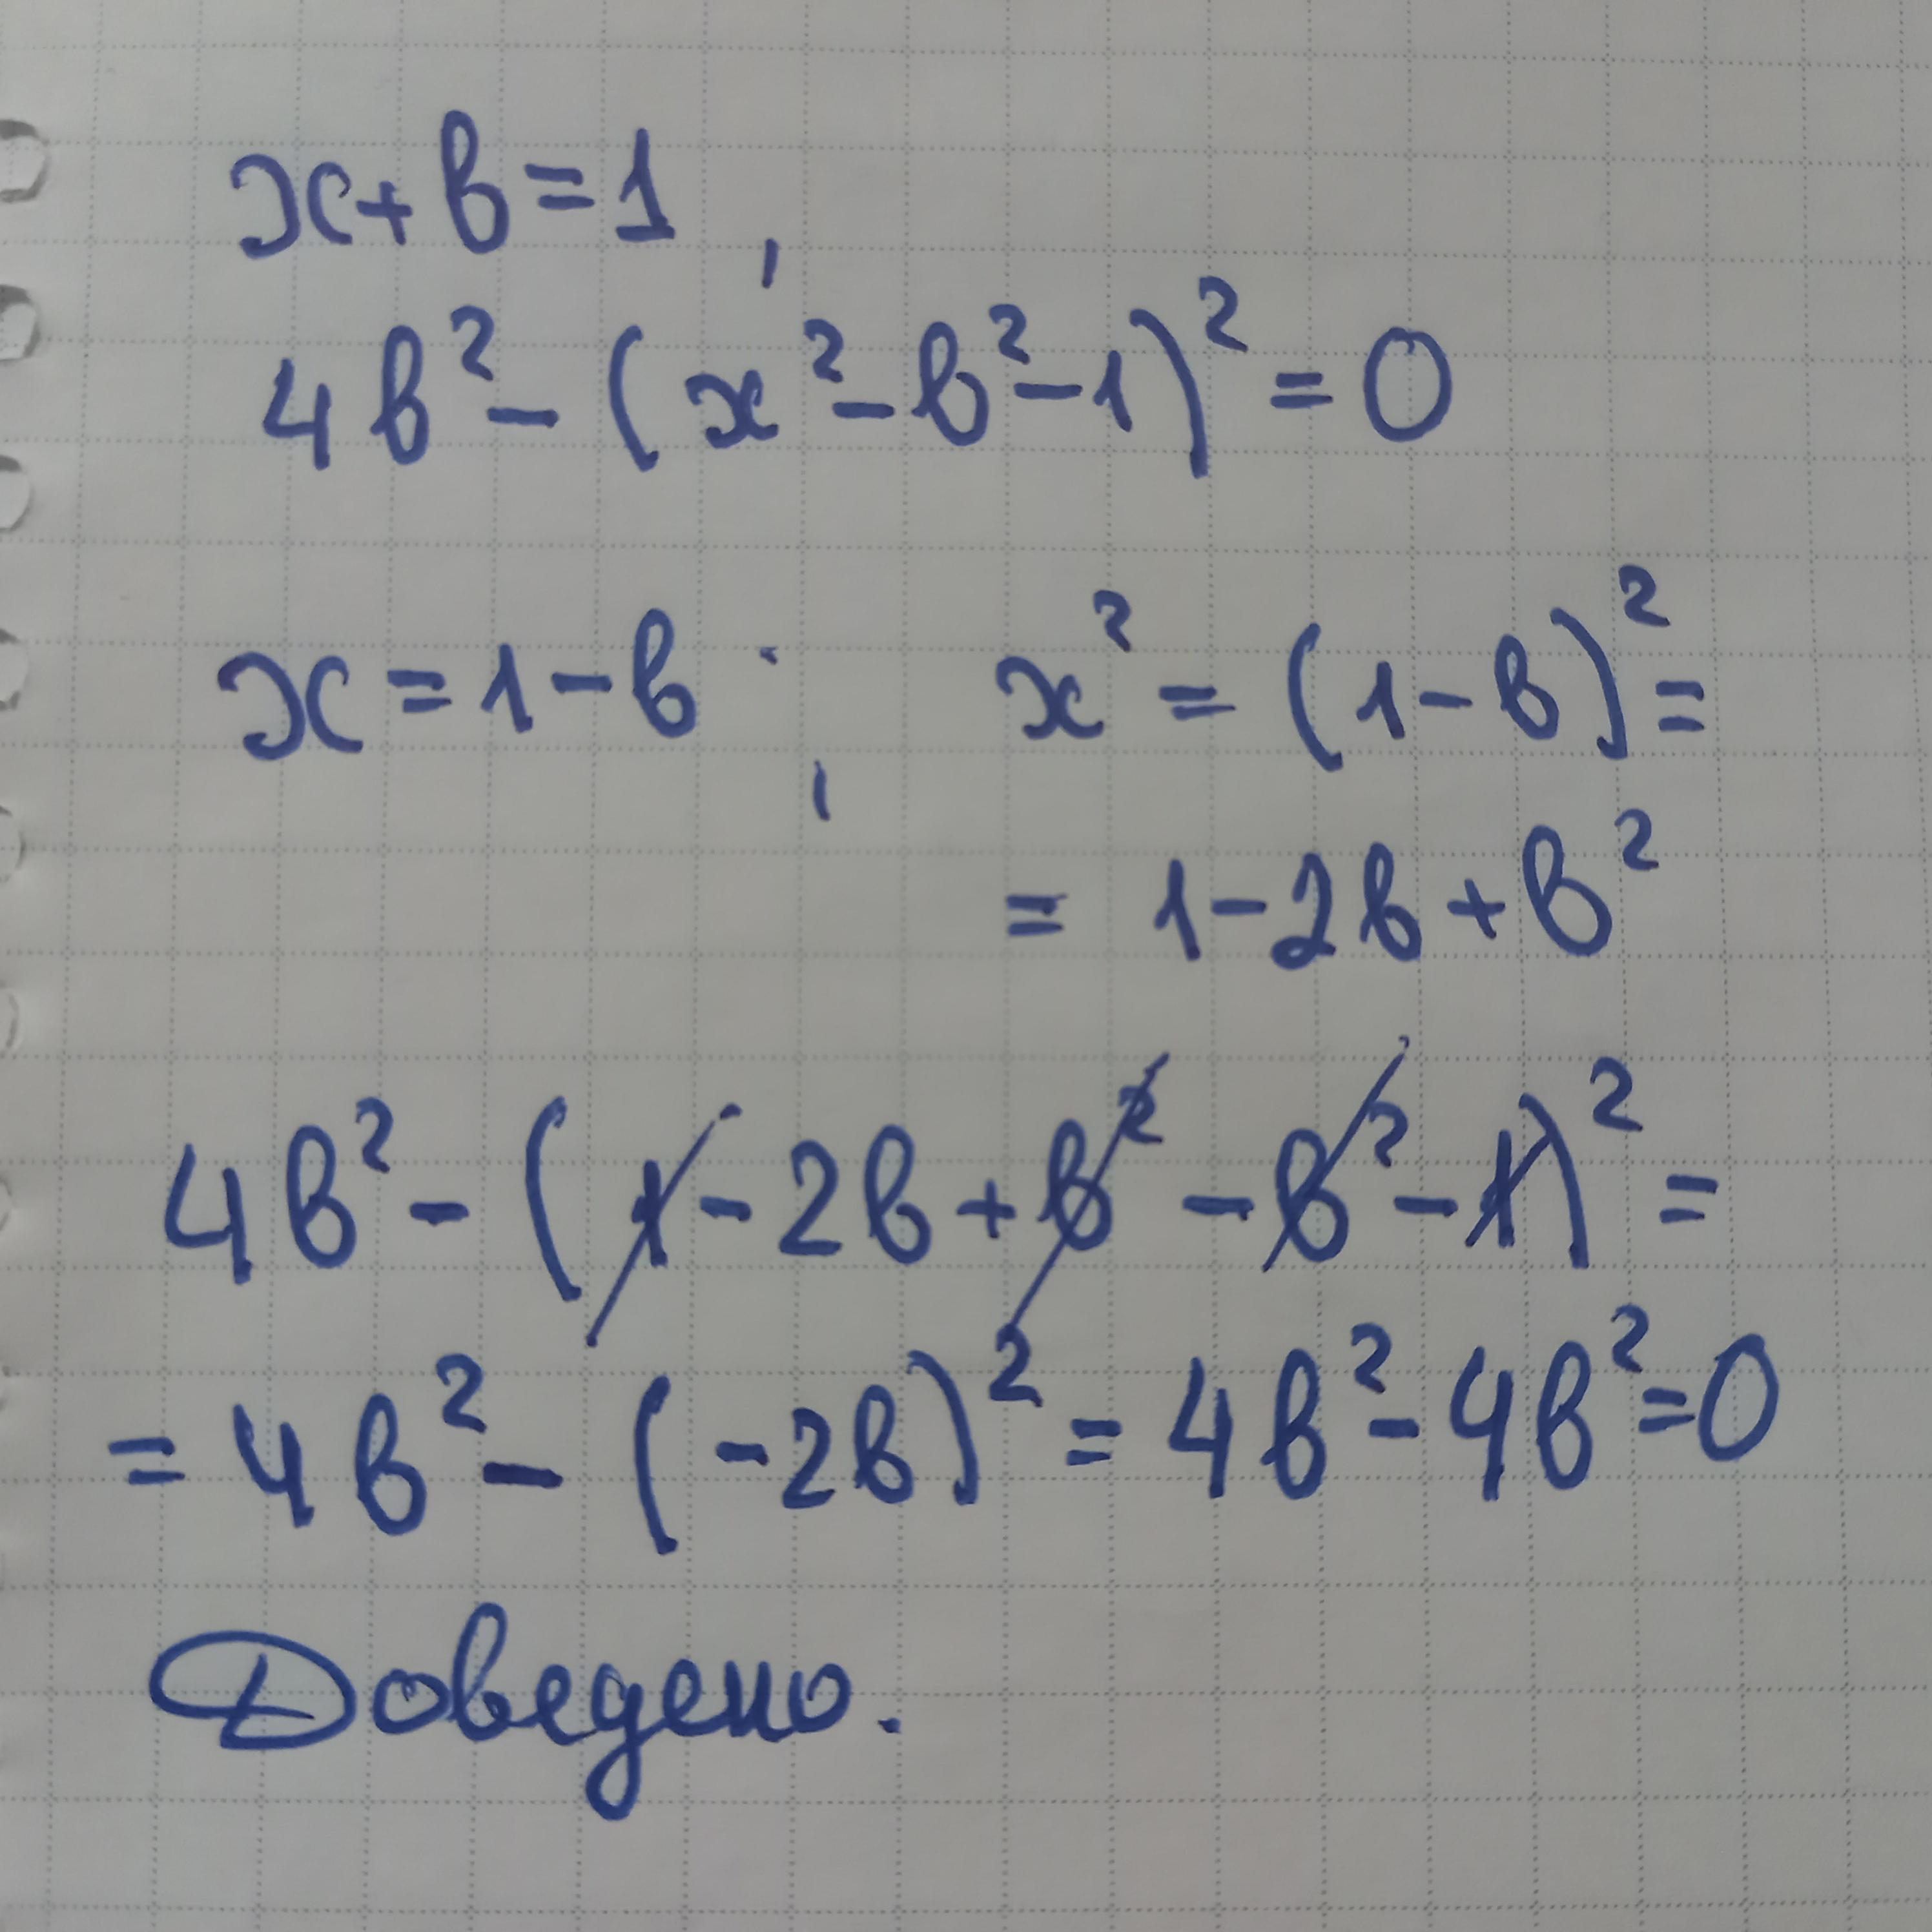 x+b=1,
4b²-(x²-b²-1)²=0
x=1-b; x²=(1-b)²=
=1-2b+b²
4b²-(1-2b+b²-b²-1)²=
=4b²-(-2b)²=4b²-4b²=0
Доведено.